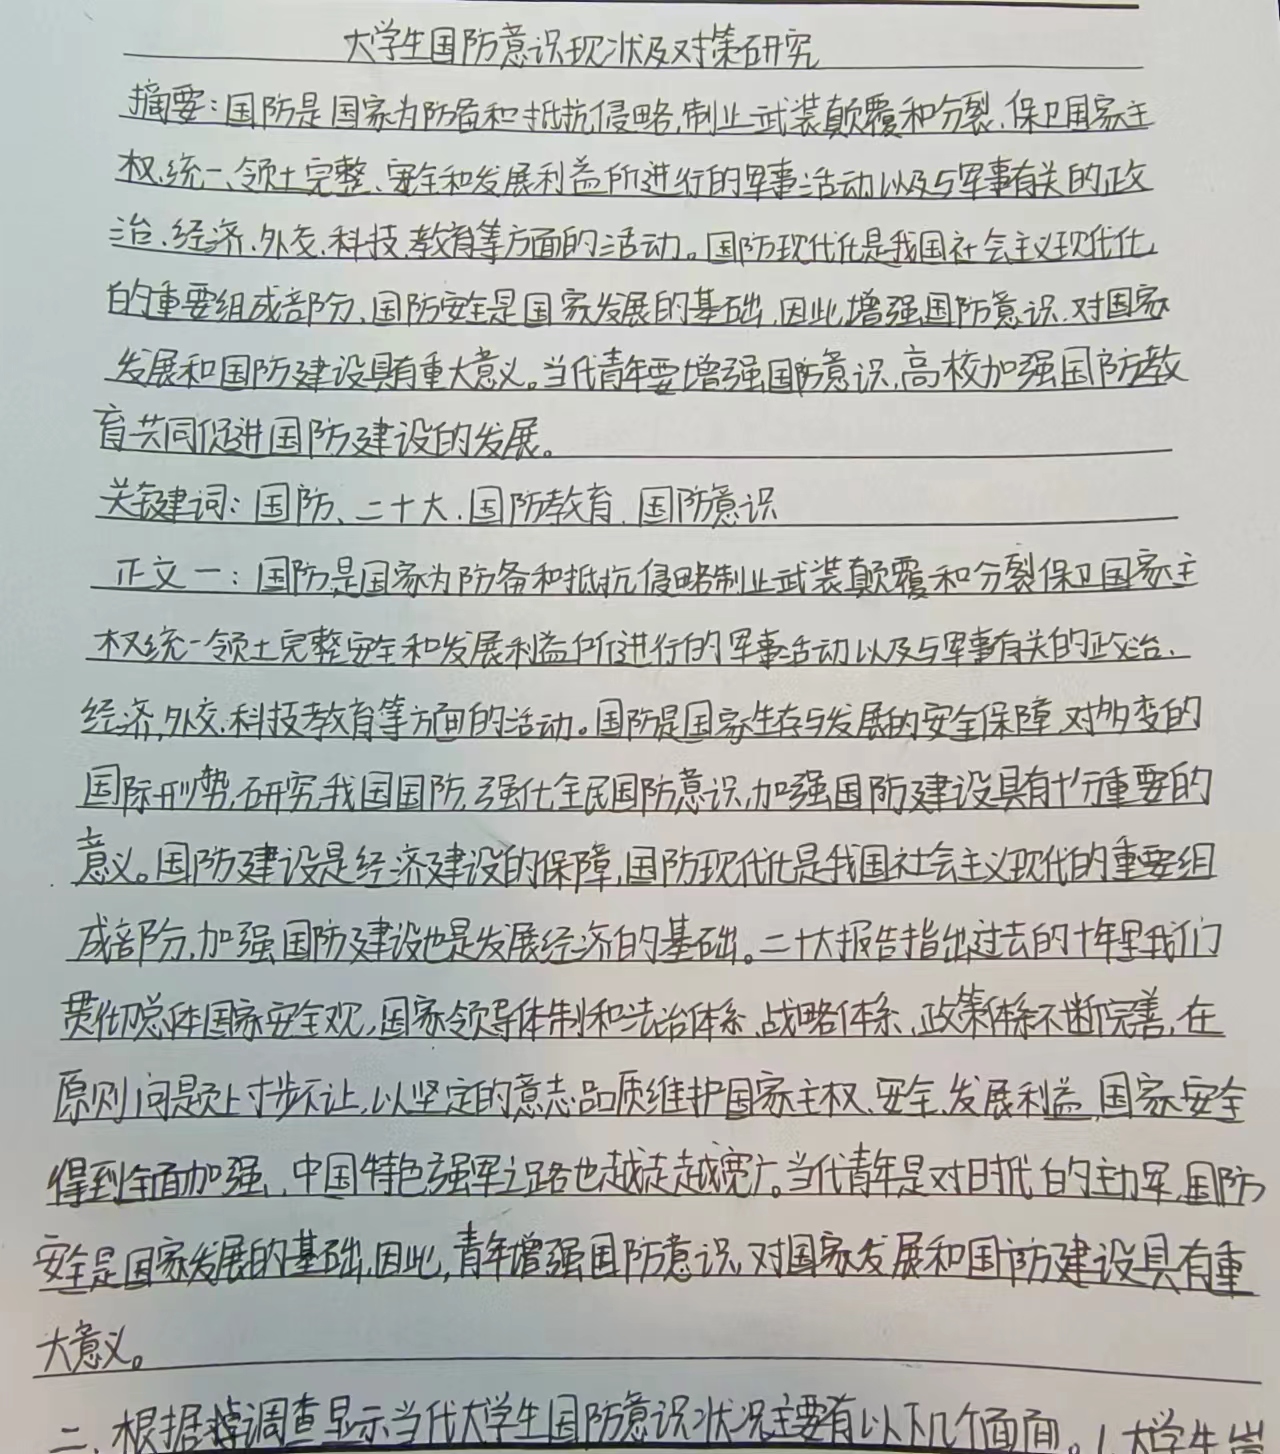 大学生国防意识现状及对策研究
摘要：国防是国家为防备和抵抗侵略,制止武装颠覆和分裂,保卫国家主
权、统一、领土完整、安全和发展利益所进行的军事活动以及与军事有关的政
治、经济、外交、科技、教育等方面的活动。国防现代化是我国社会主义现代化
的重要组成部分,国防安全是国家发展的基础,因此,增强国防意识,对国家
发展和国防建设具有重大意义。当代青年要增强国防意识,高校加强国防教
育共同促进国防建设的发展。
关键建词：国防、二十大、国防教育、国防意识
正文一：国防是国家为防备和抵抗侵略制止武装颠覆和分裂保卫国家主
权统一领土完整安全和发展利益所进行的军事活动以及与军事有关的政治、
经济,外交、科技教育等方面的活动。国防是国家生存与发展的安全保障,对多变的
国际形势,研究我国国防,强化全民国防意识,加强国防建设具有十分重要的
意义。国防建设是经济建设的保障,国防现代化是我国社会主义现代的重要组
成部分,加强国防建设也是发展经济的基础。二十大报告指出过去的十年里我们
贯彻总体国家安全观,国家领导体制和法治体系、战略体系、政策体系不断完善,在
原则问题上寸步不让,以坚定的意志品质维护国家主权、安全、发展利益,国家安全
得到全面加强,中国特色强军之路也越走越宽广。当代青年是对时代的主力军,国防
安全是国家发展的基础,因此,青年增强国防意识,对国家发展和国防建设具有重
大意义。
二、根据调查显示当代大学生国防意识状况主要有以下几个面面。1大学生